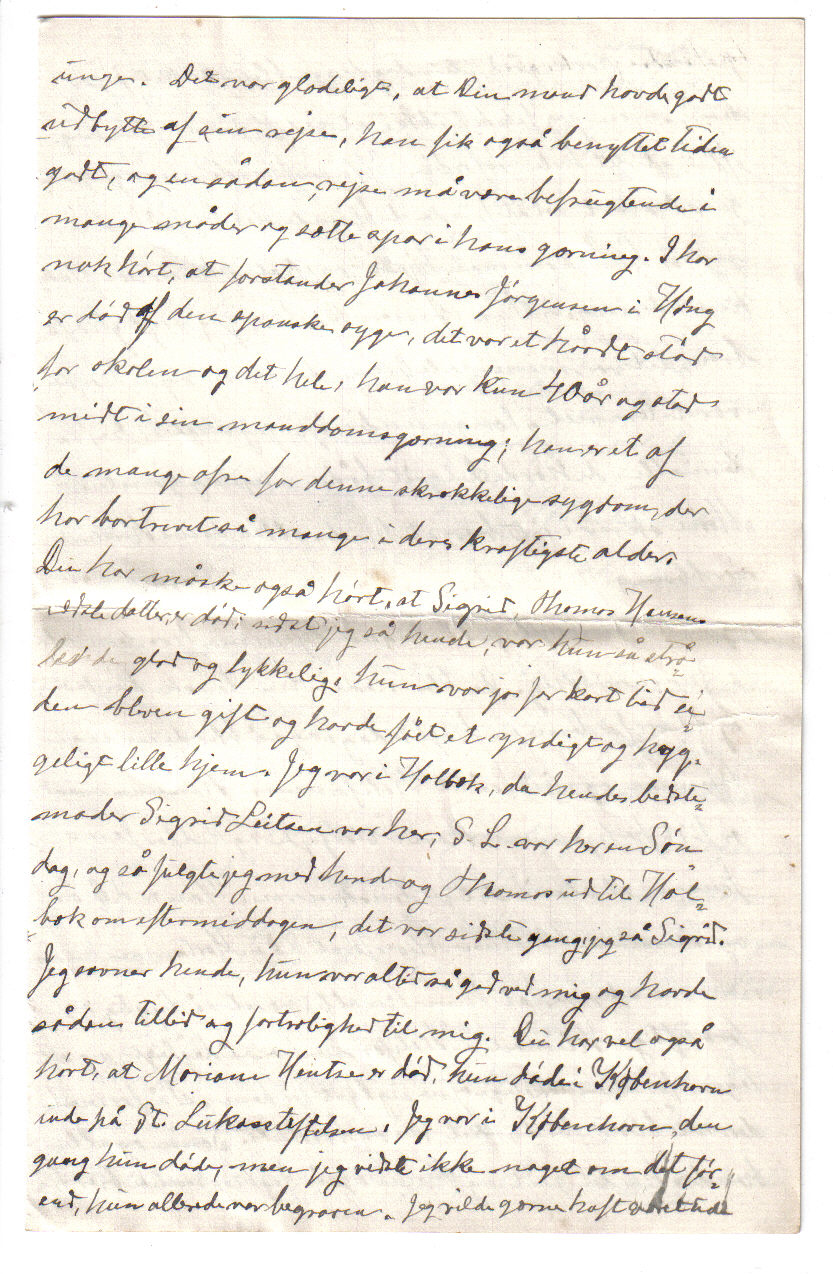 unge. Det var glædeligt, at Din mand havde godt
udbytte af sin rejse, han fik også benyttet tiden
godt, og en sådan rejse må være befrugtende i
mange måder og sætte spor i hans gærning. I har
nok hørt, at forstander Johannes Jørgensen i Høng
er död af den spanske syge, det var et hårdt stöd
for skolen og det hele, han var kun 40 år og stod
midt i sin manddomsgærning; han er et af
de mange ofre for denne skrækkelige sygdom, der
har bortrevet så mange i deres kraftigste alder.
Du har måske også hört, at Sigrid, Thomas Hansens
ældste datter, er död; sidst jeg så hende, var hun så strå=
lende glad og lykkelig, hun var jo for kort tid si=
den bleven gift og havde fået et yndigt og hyg=
geligt lille hjem. Jeg var i Holbæk, da hendes bedste=
moder Sigrid Leitsen var her; S L. var her en Sön
dag, og så fulgte jeg med hende og Thomas ud til Hol=
bæk om eftermiddagen, det var sidste gang, jeg så Sigrid.
Jeg savner hende, hun var altid så god ved mig og havde
sådan tillid og fortrolighed til mig. Du har vel også
hört, at Mariane Hentse er död, hun döde i København
inde på St. Lukasstiftelsen. Jeg var i København, den
gang hun döde, men jeg vidste ikke noget om det för=
end, hun allerede var begraven. Jeg vilde gærne haft været ude